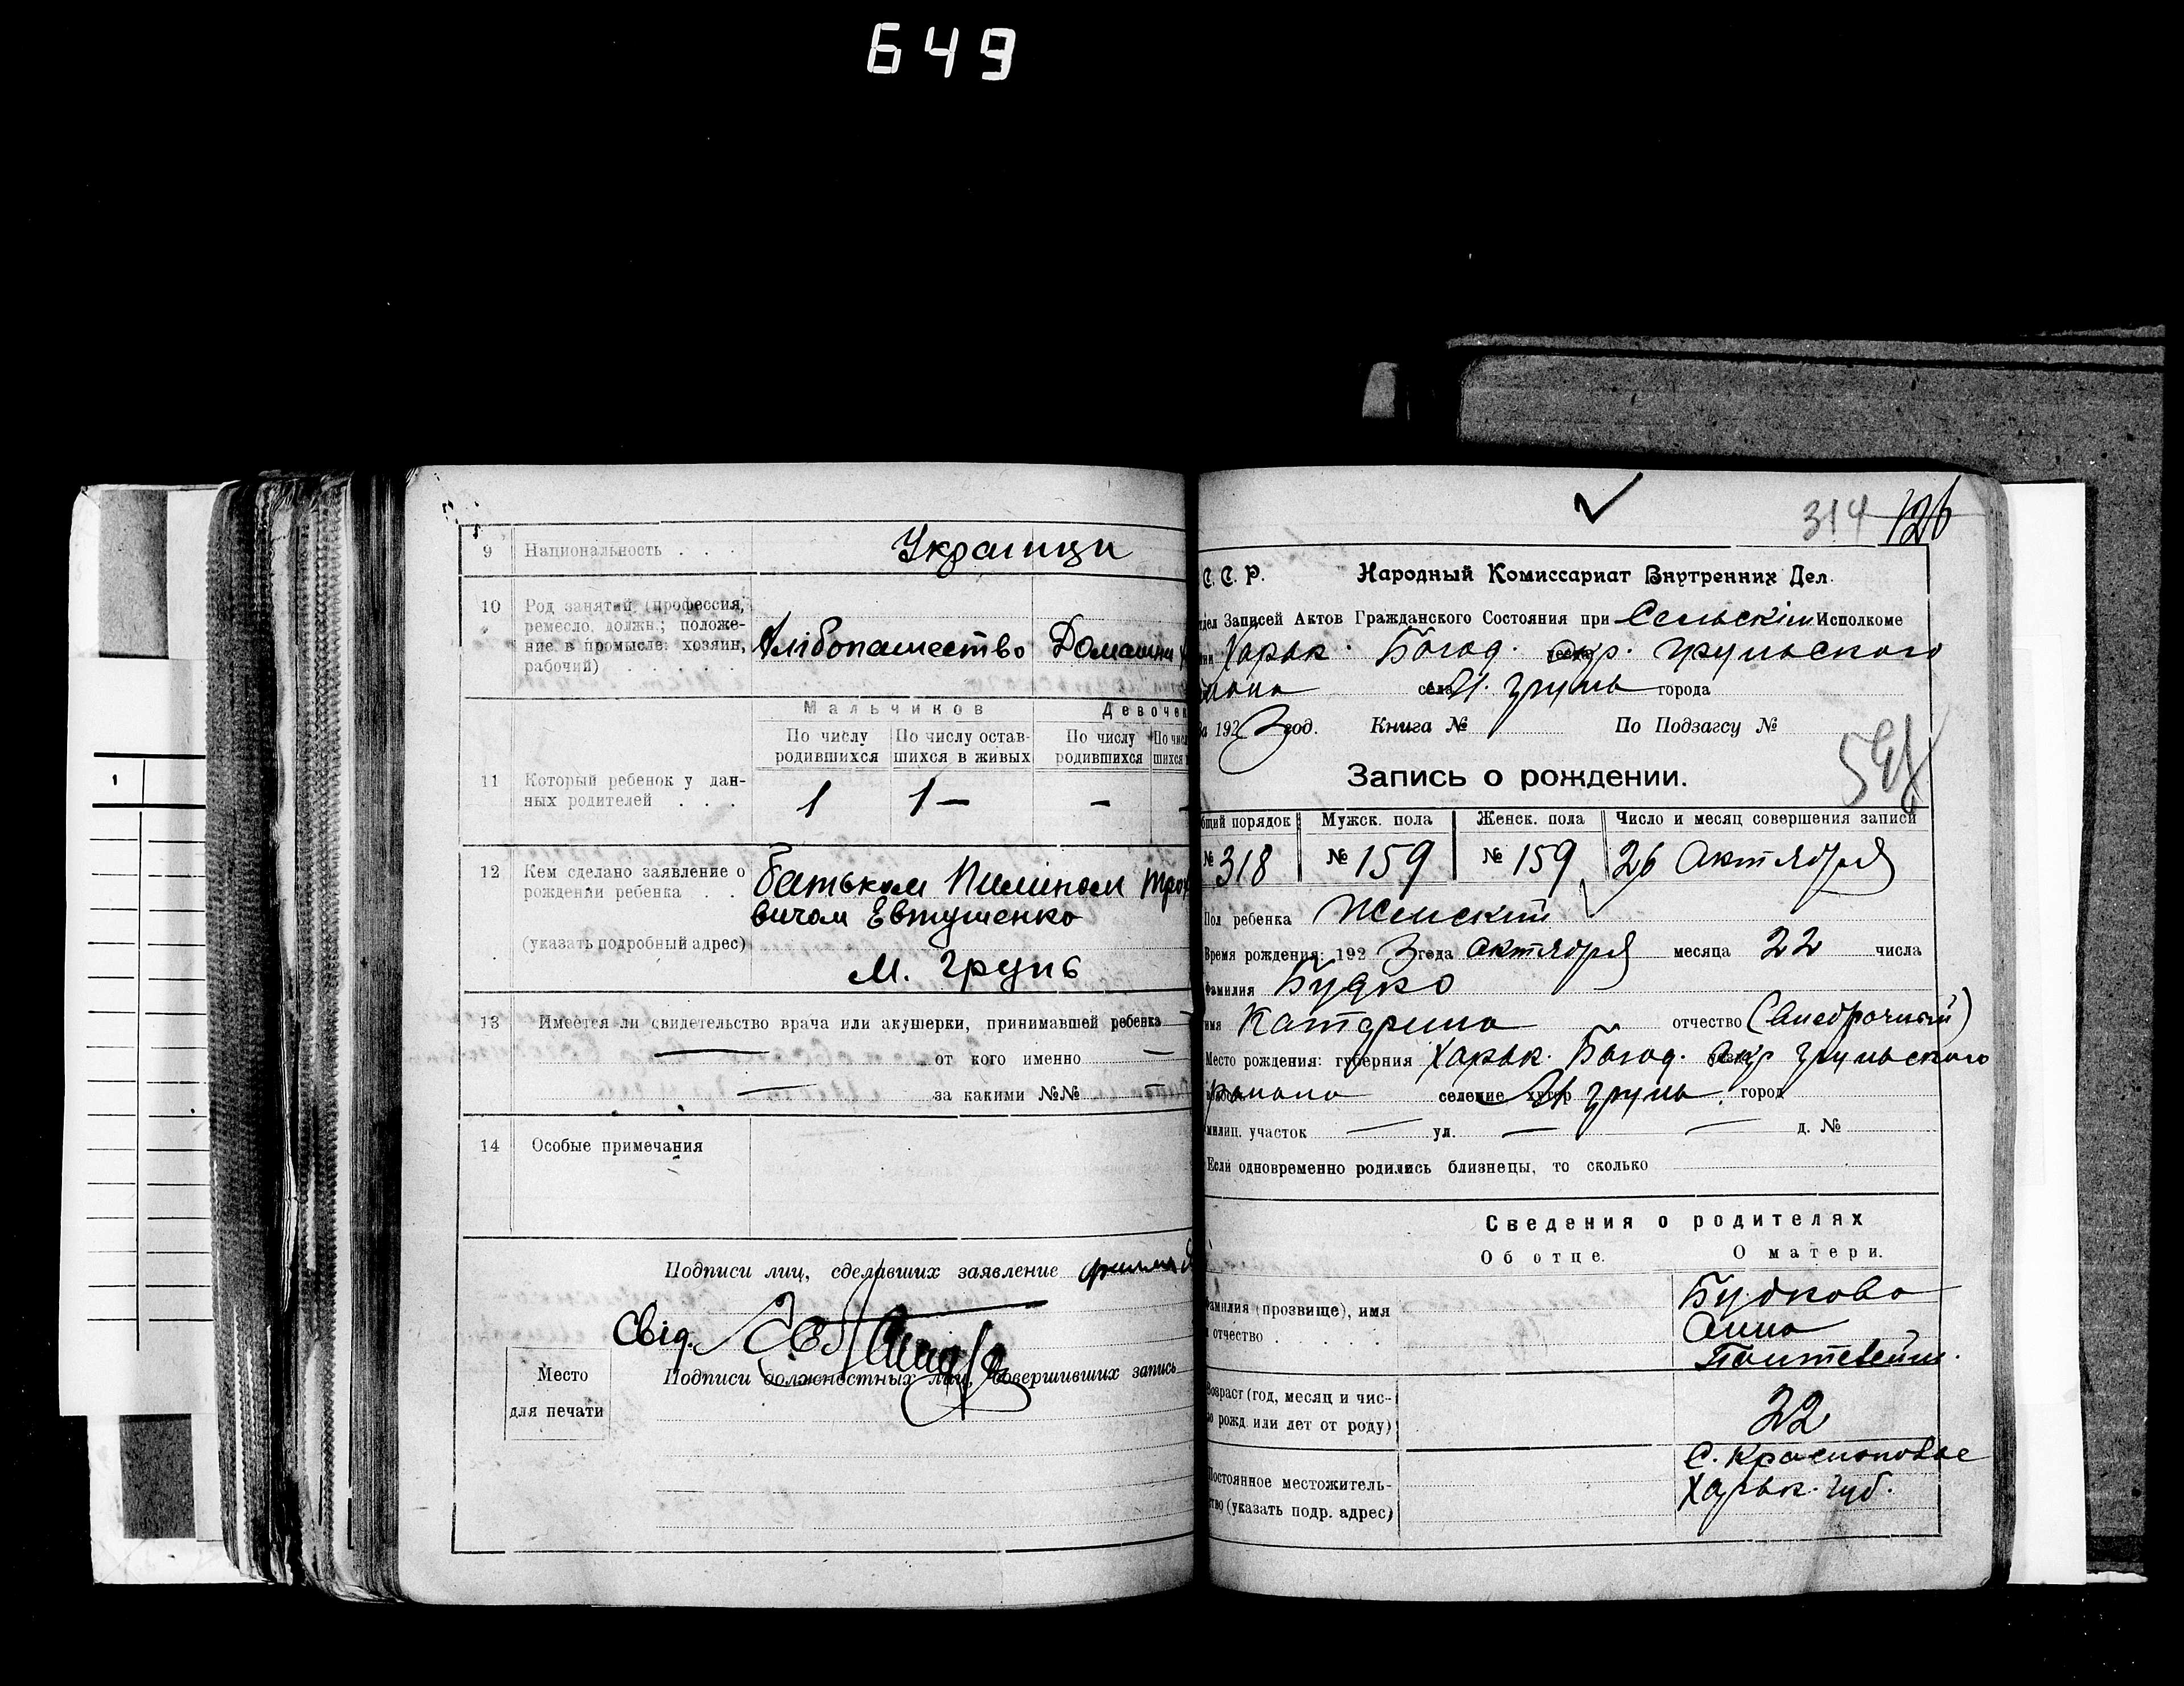 649
9 Национальность . . .
Украинци
10 Род занятий (профессия,
ремесло, должн.; положе-
ние в промысле: хозяин,
рабочий) . . . . .
Хлібопашество Домашни
Мальчиков Девочек
По числу родившихся По числу остав-шихся в живых По числу родившихся По чис шихся
11 Который ребенок у дан-
ных родителей . . .
1 1 — —
12 Кем сделано заявление о
рождении ребенка . .
(указать подробный адрес)
батьком Пиліпом Трох
вичом Евтушенко
М. Грунь
13 Имеется ли свидетельство врача или акушерки, принимавшей ребенка
— от кого именно —
— за какими №№ —
14 Особые примечания
Подписи лиц, сделавших заявление
Свід.
Подписи должностных лиц, совершивших запись
Место
для печати
314 126
С. С. Р. Народный Комиссариат Внутренних Дел.
дел Записей Актов Гражданского Состояния при Сельскім Исполкоме
Харьк. Богод. окр. Груньского
села М. Грунь города
а 1923 год. Книга № По Подзагсу №
Запись о рождении.
бщий порядок Мужск. пола Женск. пола Число и месяц совершения записи
№ 318 № 159 № 159 26 Октября
Пол ребенка Женский
Время рождения: 1923 года октября месяца 22 числа
Фамилия Будко
имя Катерина отчество (Внебрачный)
Место рождения: губерния Харьк. Богод. окр Груньского
района селение хутор М Грунь. город
милиц. участок — ул. — — д. №
Если одновременно родились близнецы, то сколько
Сведения о родителях
Об отце. О матери.
Фамилия (прозвище), имя
и отчество .
Будкова
Анна
Возраст (год, месяц и чис-
ло рожд. или лет от роду)
22
Постоянное местожитель-
ство (указать подр. адрес)
С. Краснополье
Харьк. губ.